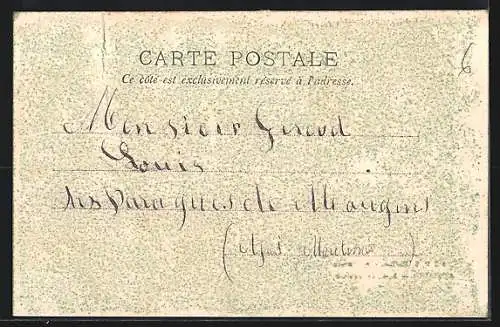 CARTE POSTALE
Ce côté est exclusivement réservé à l'adresse.
6
Monsieur Giroud
Louis
les baraques de Mougins
(Alpes Maritimes)